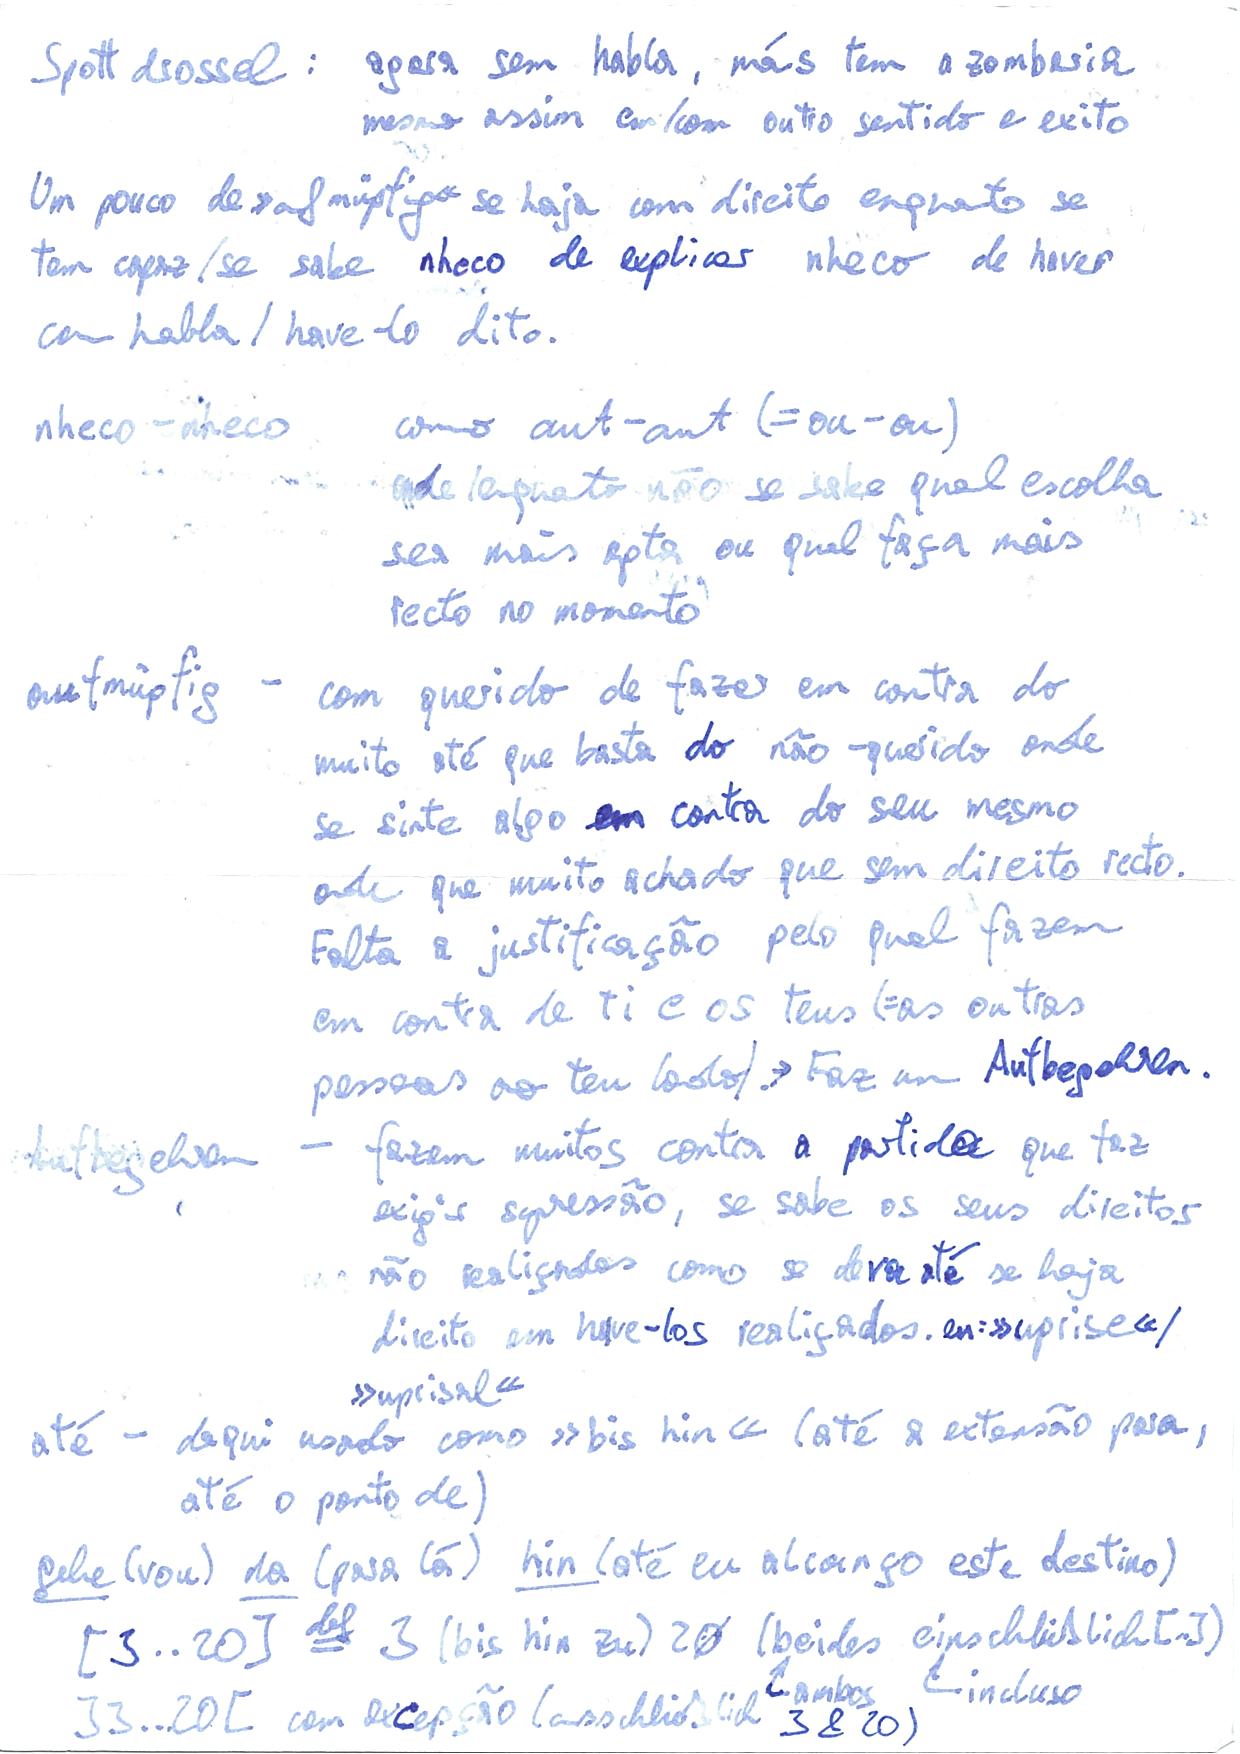 Spottdrossel : agora sem habla, más tem a zombaria
mesmo assim em/com outro sentido e exito
Um pouco de »aufmüpfig« se haja com direito enquato se
tem capaz/se sabe nheco de explicar nheco de haver
com habla / have-lo dito.
nheco-nheco como aut-aut (=ou-ou)
onde/enquato não se sabe qual escolha
ser mais apta ou qual faça mais
recto no momento
aufmüpfig - com querido de fazer em contra do
muito até que basta do não-querido onde
se sinte algo em contra do seu mesmo
onde que muito achado que sem direito recto.
Falta a justificação pelo qual fazem
em contra de ti e os teus (=as outras
pessoas ao teu lado/.→ Faz um Aufbegehren.
Aufbegehren - fazem muitos contra a partida que faz
exigir supressão, se sabe os seus direitos
não realiçados como se deva até se haja
direito em have-los realiçados. en:»uprise«/
»uprisal«
até - daqui usado como »bis hin« (até a extensão para,
até o ponto de)
gehe (vou) da (para lá) hin (até eu alcanço este destino)
[3..20] def = 3 (bis hin zu) 20 (beides einschließlich[..])
ambos incluso
]3..20[ com excepção (ausschließlich 3 & 20)